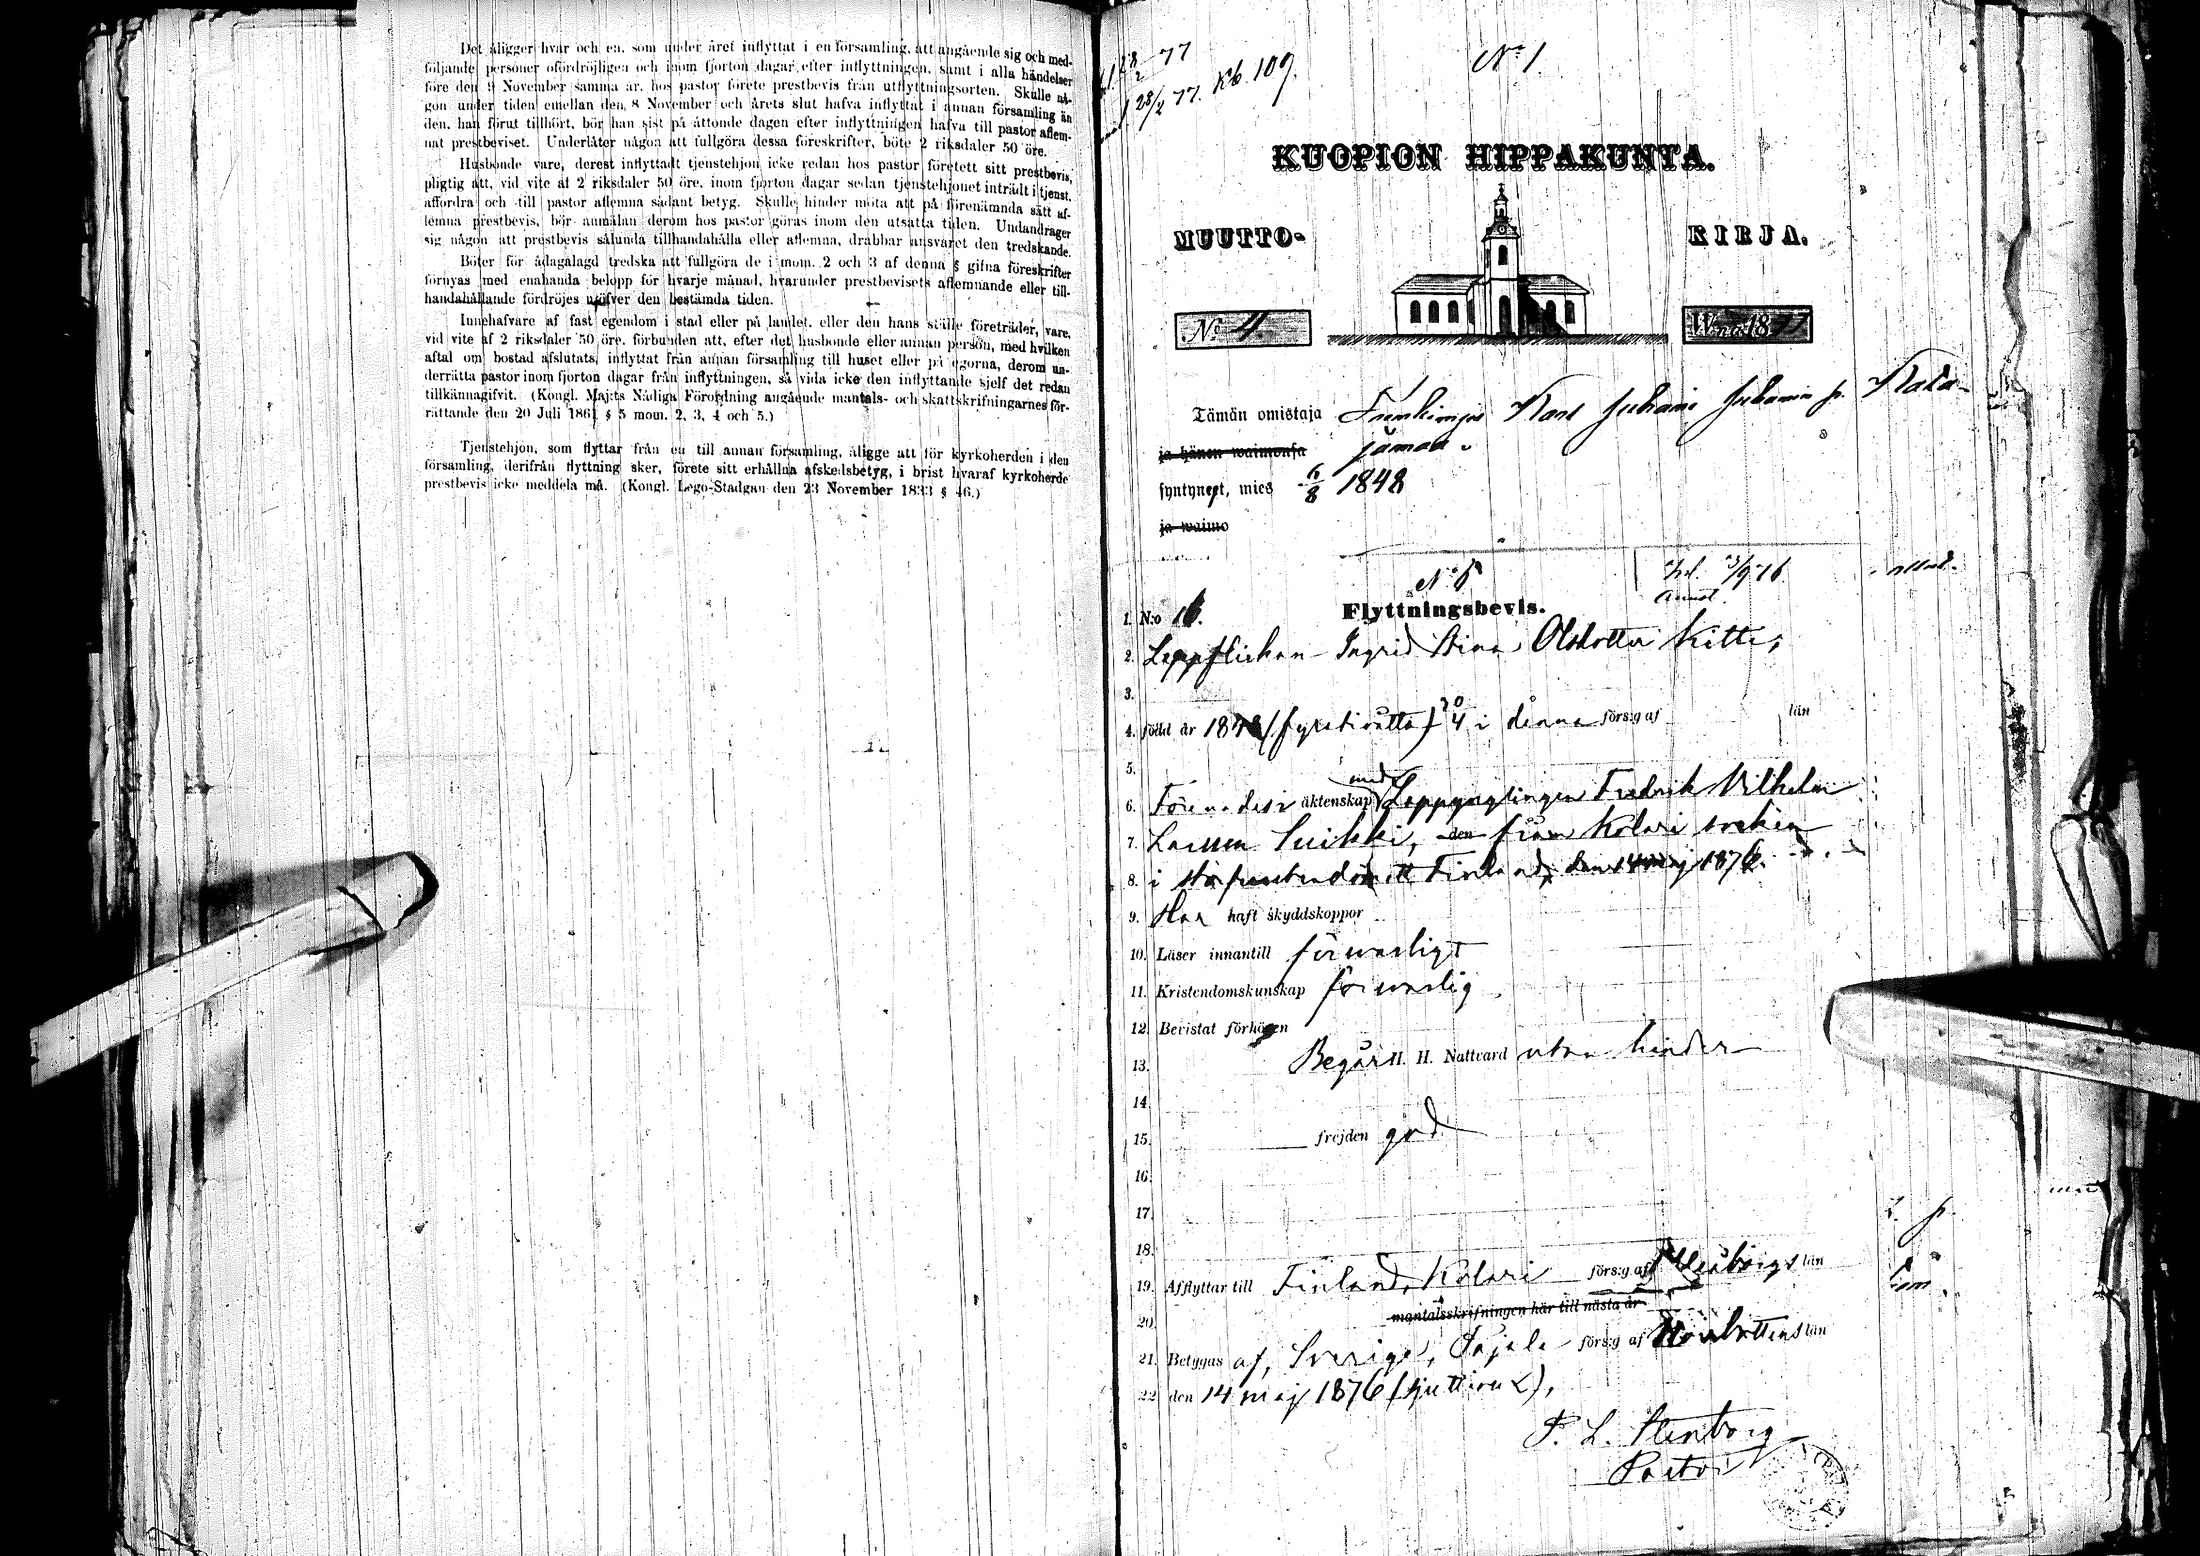 Det åligger hvar och en, som under året inflyttat i en församling, att angående sig och med-
följande personer ofördröjligen och inom fjorton dagar efter inflyttningen, samt i alla händelser
före den 9 November samma år, hos pastor förete prestbevis från utflyttningsorten. Skulle nå-
gon under tiden emellan den 8 November och årets slut hafva inflyttat i annan församling än
den, han förut tillhört, bör han sist på åttonde dagen efter inflyttningen hafva till pastor aflem-
nat prestbeviset. Underlåter någon att fullgöra dessa föreskrifter, böte 2 riksdaler 50 öre.
Husbonde vare, derest inflyttadt tjenstehjon icke redan hos pastor företett sitt prestbevis,
pligtig att, vid vite af 2 riksdaler 50 öre, inom fjorton dagar sedan tjenstehjonet inträdt i tjenst,
affordra och till pastor aflemna sådant betyg. Skulle hinder möta att på förenämnda sätt af-
lemna prestbevis, bör anmälan derom hos pastor göras inom den utsatta tiden. Undandrager
sig någon att prestbevis sålunda tillhandahålla eller aflemna, drabbar ansvaret den tredskande.
Böter för ådagalagd tredska att fullgöra de i mom. 2 och 3 af denna § gifna föreskrifter
förnyas med enahanda belopp för hvarje månad, hvarunder prestbevisets aflemnande eller till-
handahållande fördröjes utöfver den bestämda tiden.
Innehafvare af fast egendom i stad eller på landet, eller den hans ställe företräder, vare,
vid vite af 2 riksdaler 50 öre, förbunden att, efter det husbonde eller annan person, med hvilken
aftal om bostad afslutats, inflyttat från annan församling till huset eller på egorna, derom un-
derrätta pastor inom fjorton dagar från inflyttningen, så vida icke den inflyttande sjelf det redan
tillkännagifvit. (Kongl. Maj:ts Nådiga Förordning angående mantals- och skattskrifningarnes för-
rättande den 20 Juli 1861 § 5 mom. 2, 3, 4 och 5.)
Tjenstehjon, som flyttar från en till annan församling, åligge att för kyrkoherden i den
församling, derifrån flyttning sker, förete sitt erhållna afskedsbetyg, i brist hvaraf kyrkoherde
prestbevis icke meddela må. (Kongl. Lego-Stadgan den 23 November 1833 § 46.)
28/2 77. Kb. 109.
No 1
KUOPION HIPPAKUNTA.
MUUTTO-
KIRJA.
No 4.
W:na 1877
Tämän omistaja Karl Juhani
ja hänen waimonsa
syntynyt, mies 6/8 1848
ja waimo
No 8
Flyttningsbevis.
1. N:o 16.
2. Lappflickan Ingrid Stina Olsdotter Kitti,
3.
4. född år 1848 (fyratiåtta) 20/4 i denna förs:g af län
5.
med
6. Förenades i äktenskap Lappynglingen Fredrik Vilhelm
7. Larsson Suikki, den från Kolari socken
8. i Storfurstendömet Finland, den 14 maj 1876.
9. Har haft skyddskoppor
10. Läser innantill försvarligt
11. Kristendomskunskap försvarlig
12. Bevistat förhören
13. Begår H. H. Nattvard utan hinder
14.
15. frejden god
16.
17.
18.
19. Afflyttar till Finland, Kolari förs:g af Uleåborgs län
20. mantalsskrifningen här till nästa år
21. Betygas af, Sverige, Pajala förs:g af Norrbottens län
22. den 14 maj 1876 (sjuttisex),
P. L. Stenborg
Pastor